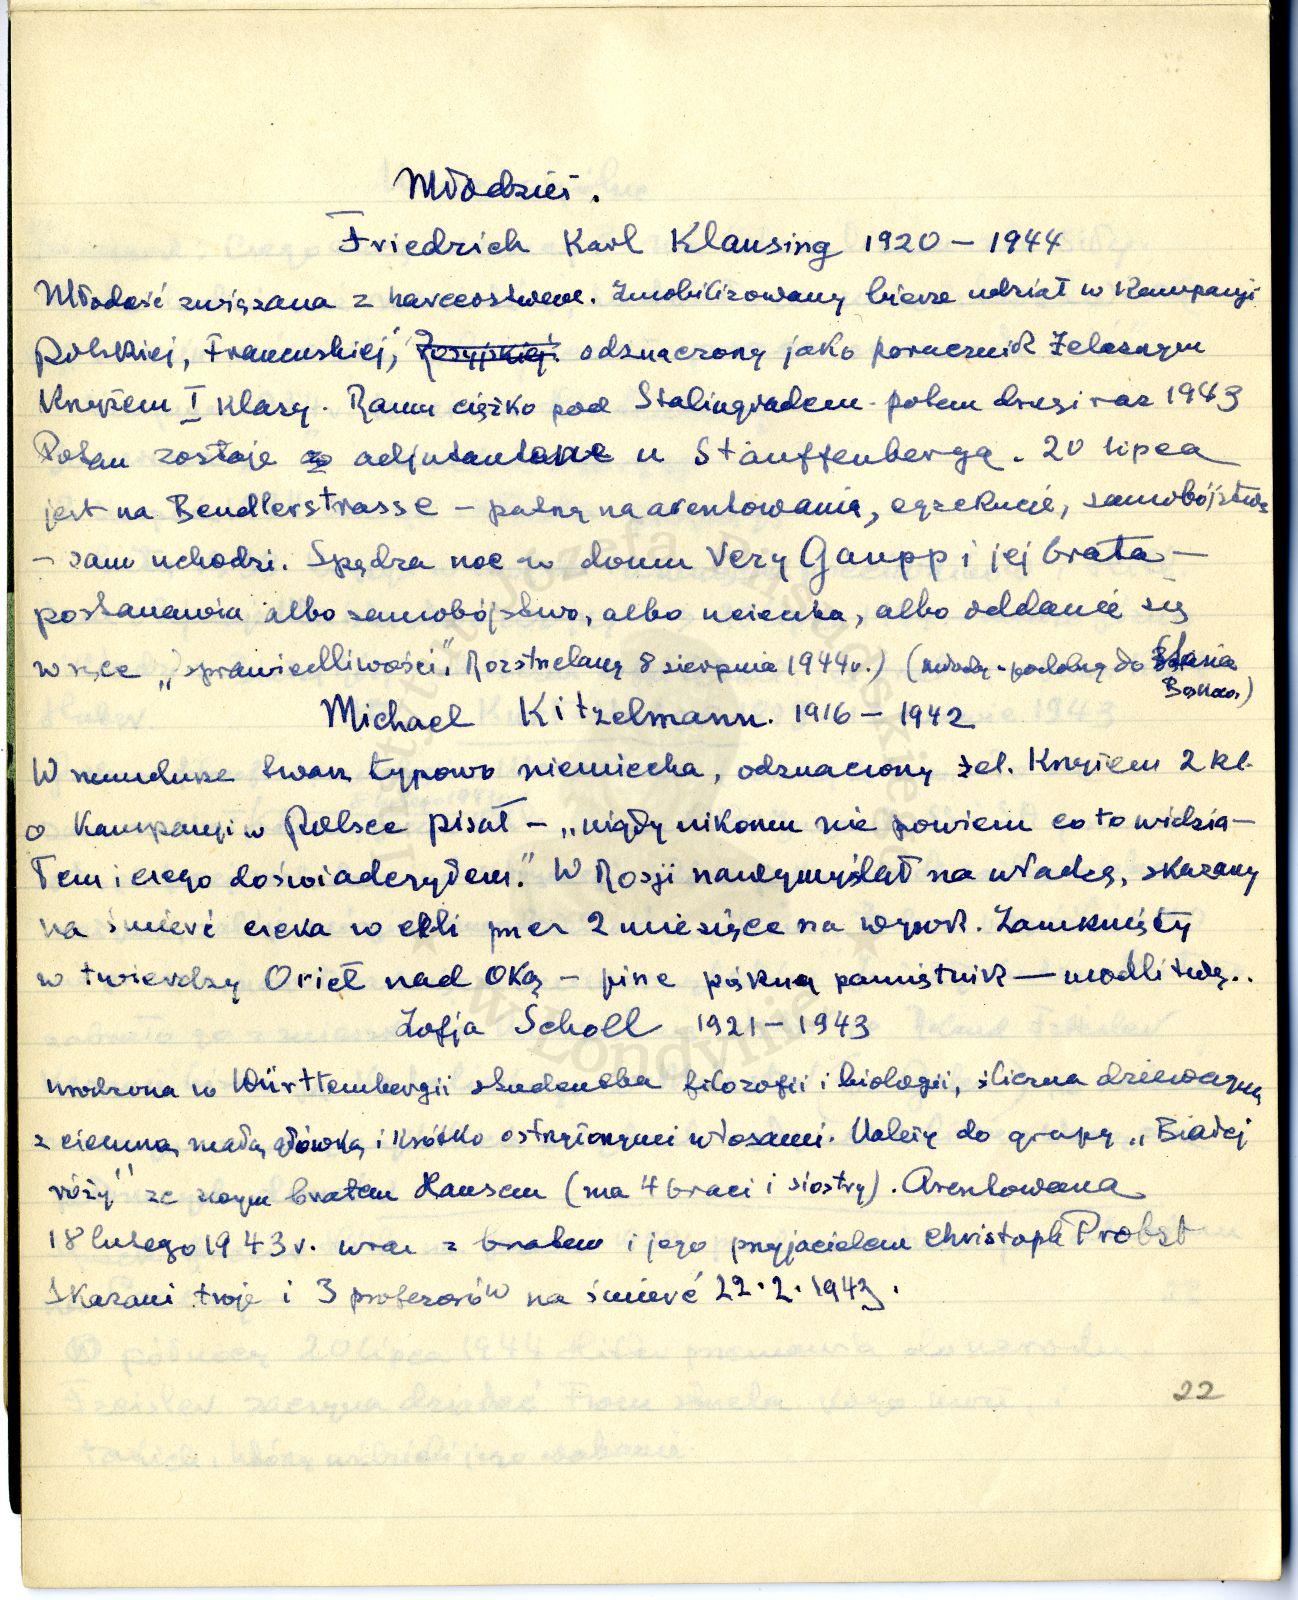 Młodzież.
Friedrich Karl Klausing 1920 – 1944
Młodość związana z harcerstwem. Zmobilizowany bierze udział w Kampanji
Polskiej, Francuskiej, Rosyjskiej odznaczony jako porucznik Żelaznym
Krzyżem I klasy. Ranny ciężko pod Stalingradem potem drugi raz 1943
Potem zostaje adjutantem u Stauffenberga. 20 lipca
jest na Bendlerstrasse – patrzy na aresztowania, egzekucje, samobójstwa
– sam uchodzi. Spędza noc w domu Very Gaupp i jej brata –
postanawia albo samobójstwo, albo ucieczka, albo oddanie się
w ręce „sprawiedliwości". Rozstrzelany 8 sierpnia 1944 r.) (młody – podobny do Stasia
Michael Kitzelmann. 1916 – 1942
W mundurze twarz typowo niemiecka, odznaczony żel. Krzyżem 2 kl.
o Kampanji w Polsce pisał – „nigdy nikomu nie powiem co to widzia–
łem i czego doświadczyłem." W Rosji nawymyślał na władzę, skazany
na śmierć czeka w celi przez 2 miesiące na wyrok. Zamknięty
w twierdzy Orieł nad Oką – pisze piękny pamiętnik – modlitwę..
Zofja Scholl 1921 – 1943
urodzona w Württembergii studentka filozofii i biologii, śliczna dziewczyna
z ciemną małą główką i krótko ostrzyżonymi włosami. Należy do grupy „Białej
róży" ze swoim bratem Hansem (ma 4 braci i siostry). Aresztowana
18 lutego 1943 r. wraz z bratem i jego przyjacielem Christoph Probst
Skazani troje i 3 profesorów na śmierć 22.2.1943.
22